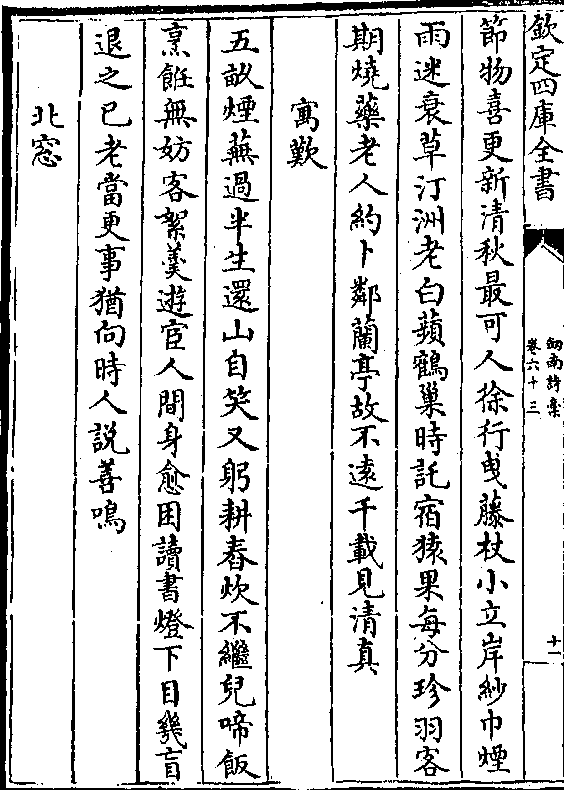 欽定四庫全書
劒南詩稾
卷六十三
十一
節物喜更新清秋最可人徐行曳藤杖小立岸紗巾煙
雨迷衰草汀洲老白蘋鶴巢時託宿猿果每分珍羽客
期燒藥老人約卜鄰蘭亭故不遠千載見清真
寓歎
五畝煙蕪過半生還山自笑又躬耕舂炊不繼兒啼飯
烹飪無妨客絮羮遊宦人間身愈困讀書燈下目㡬盲
退之已老當更事猶向時人說善鳴
北窓